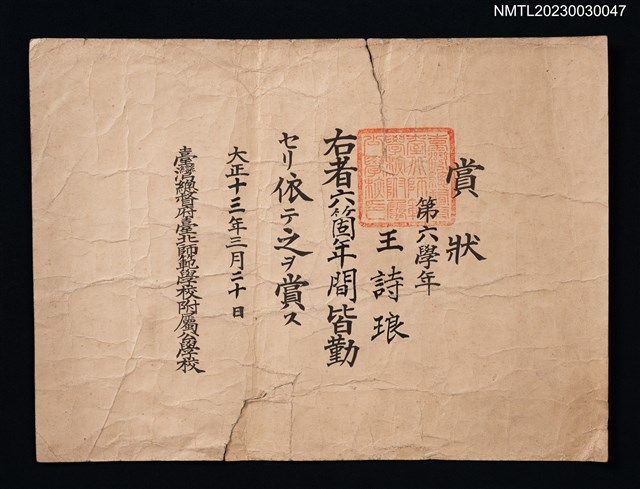 NMTL20230030047
賞狀
第六學年
王詩琅
右者六箇年間皆勤
セリ依テ之ヲ賞ス
大正十三年三月二十日
臺灣總督府臺北師範學校附屬公學校